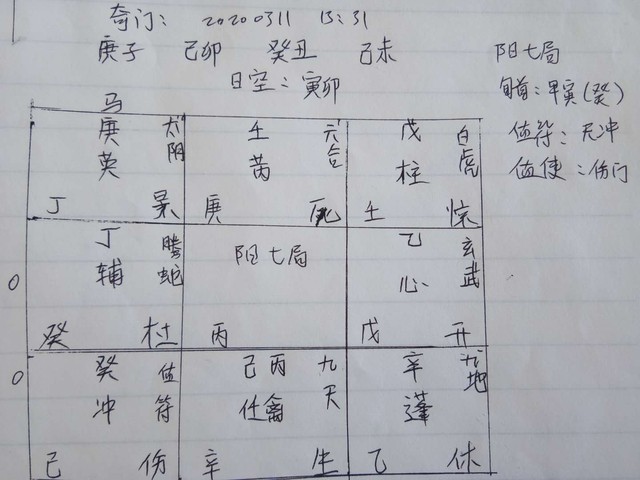 奇门: 20200311 13:31
庚子 己卯 癸丑 己未 阳七局
日空:寅卯 旬首:甲寅(癸)
值符:天冲
值使:伤门
马
庚 太阴 壬 六合 戊 白虎
英 芮 柱
丁 景 庚 死 壬 惊
丁 螣蛇 阳七局 乙 玄武
0 辅 心
癸 杜 丙 戊 开
0 癸 值符 己丙 九天 辛 九地
冲 任禽 蓬
己 伤 辛 生 乙 休